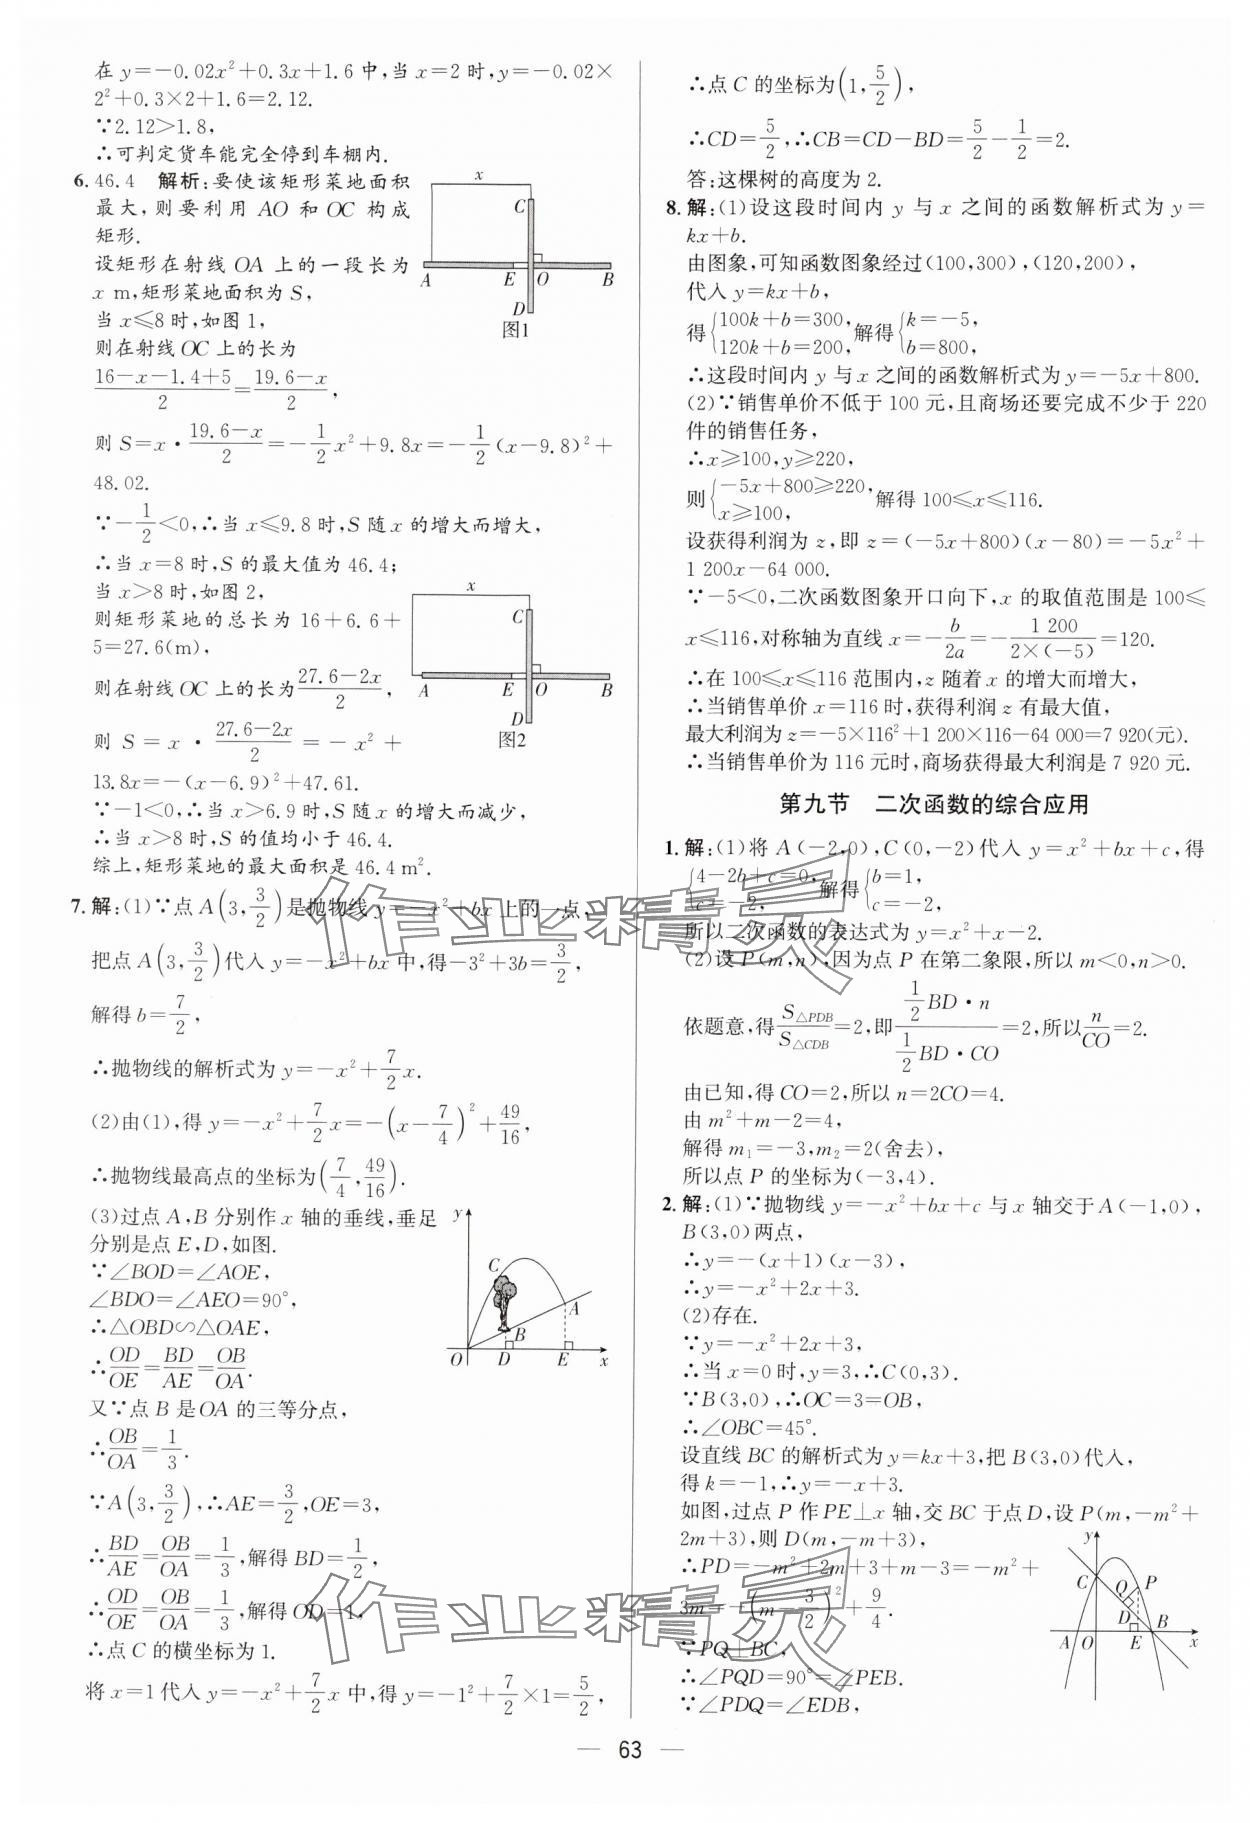 在 y=-0.02x²+0.3x+1.6 中,当 x=2 时,y=-0.02×
2²+0.3×2+1.6=2.12.
∵2.12>1.8,
∴可判定货车能完全停到车棚内.
6. 46.4 解析:要使该矩形菜地面积
最大,则要利用 AO 和 OC 构成
矩形.
设矩形在射线 OA 上的一段长为
x m,矩形菜地面积为 S,
当 x≤8 时,如图 1,
则在射线 OC 上的长为
(16-x-1.4+5)/2=(19.6-x)/2,
则 S=x·(19.6-x)/2=-1/2x²+9.8x=-1/2(x-9.8)²+
48.02.
∵-1/2<0,∴当 x≤9.8 时,S 随 x 的增大而增大,
∴当 x=8 时,S 的最大值为 46.4;
当 x>8 时,如图 2,
则矩形菜地的总长为 16+6.6+
5=27.6(m),
则在射线 OC 上的长为(27.6-2x)/2,
则 S=x·(27.6-2x)/2=-x²+
13.8x=-(x-6.9)²+47.61.
∵-1<0,∴当 x>6.9 时,S 随 x 的增大而减少,
∴当 x>8 时,S 的值均小于 46.4.
综上,矩形菜地的最大面积是 46.4 m².
x
C
A E O B
D
图1
x
C
A E O B
D
图2
7. 解:(1)∵点 A(3,3/2)是抛物线 y=-x²+bx 上的一点,
把点 A(3,3/2)代入 y=-x²+bx 中,得-3²+3b=3/2,
解得 b=7/2,
∴抛物线的解析式为 y=-x²+7/2x.
(2)由(1),得 y=-x²+7/2x=-(x-7/4)²+49/16,
∴抛物线最高点的坐标为(7/4,49/16).
(3)过点 A,B 分别作 x 轴的垂线,垂足
分别是点 E,D,如图.
∵∠BOD=∠AOE,
∠BDO=∠AEO=90°,
∴△OBD∽△OAE,
∴OD/OE=BD/AE=OB/OA.
又∵点 B 是 OA 的三等分点,
∴OB/OA=1/3.
∵A(3,3/2),∴AE=3/2,OE=3,
∴BD/AE=OB/OA=1/3,解得 BD=1/2,
∴OD/OE=OB/OA=1/3,解得 OD=1,
∴点 C 的横坐标为 1.
将 x=1 代入 y=-x²+7/2x 中,得 y=-1²+7/2×1=5/2,
y
C
A
B
O D E x
∴点 C 的坐标为(1,5/2),
∴CD=5/2,∴CB=CD-BD=5/2-1/2=2.
答:这棵树的高度为 2.
8. 解:(1)设这段时间内 y 与 x 之间的函数解析式为 y=
kx+b.
由图象,可知函数图象经过(100,300),(120,200),
代入 y=kx+b,
得{100k+b=300, 120k+b=200,解得{k=-5, b=800,
∴这段时间内 y 与 x 之间的函数解析式为 y=-5x+800.
(2)∵销售单价不低于 100 元,且商场还要完成不少于 220
件的销售任务,
∴x≥100,y≥220,
则{-5x+800≥220, x≥100,解得 100≤x≤116.
设获得利润为 z,即 z=(-5x+800)(x-80)=-5x²+
1 200x-64 000.
∵-5<0,二次函数图象开口向下,x 的取值范围是 100≤
x≤116,对称轴为直线 x=-b/2a=-1 200/(2×(-5))=120.
∴在 100≤x≤116 范围内,z 随着 x 的增大而增大,
∴当销售单价 x=116 时,获得利润 z 有最大值,
最大利润为 z=-5×116²+1 200×116-64 000=7 920(元).
∴当销售单价为 116 元时,商场获得最大利润是 7 920 元.
第九节 二次函数的综合应用
1. 解:(1)将 A(-2,0),C(0,-2)代入 y=x²+bx+c,得
{4-2b+c=0, c=-2,解得{b=1, c=-2,
所以二次函数的表达式为 y=x²+x-2.
(2)设 P(m,n),因为点 P 在第二象限,所以 m<0,n>0.
依题意,得S△PDB/S△CDB=2,即(1/2BD·n)/(1/2BD·CO)=2,所以n/CO=2.
由已知,得 CO=2,所以 n=2CO=4.
由 m²+m-2=4,
解得 m₁=-3,m₂=2(舍去),
所以点 P 的坐标为(-3,4).
2. 解:(1)∵抛物线 y=-x²+bx+c 与 x 轴交于 A(-1,0),
B(3,0)两点,
∴y=-(x+1)(x-3),
∴y=-x²+2x+3.
(2)存在.
∵y=-x²+2x+3,
∴当 x=0 时,y=3,∴C(0,3).
∵B(3,0),∴OC=3=OB,
∴∠OBC=45°.
设直线 BC 的解析式为 y=kx+3,把 B(3,0)代入,
得 k=-1,∴y=-x+3.
如图,过点 P 作 PE⊥x 轴,交 BC 于点 D,设 P(m,-m²+
2m+3),则 D(m,-m+3),
∴PD=-m²+2m+3+m-3=-m²+
3m=-(m-3/2)²+9/4.
∵PQ⊥BC,
∴∠PQD=90°=∠PEB.
∵∠PDQ=∠EDB,
y
C
Q P
D
B
A O E x
作业精灵
作业精灵
— 63 —